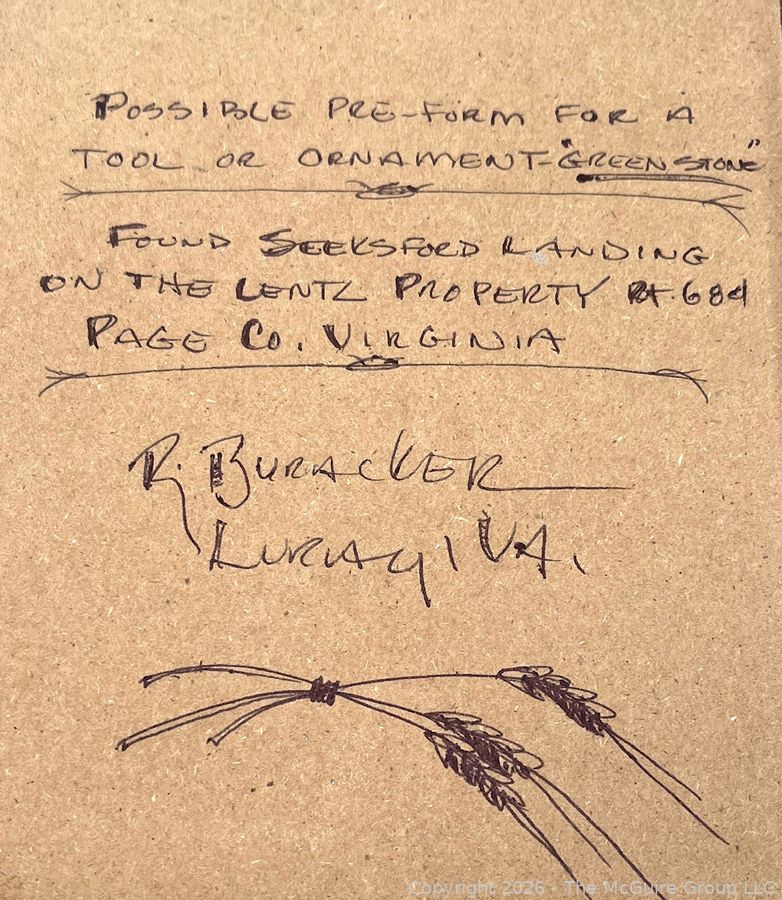 POSSIBLE PRE-FORM FOR A
TOOL OR ORNAMENT - "GREEN STONE"
FOUND SEEKSFORD LANDING
ON THE LENTZ PROPERTY Rt. 684
PAGE CO. VIRGINIA
R BURACKER
LURAY, VA.
Copyright 2026 - The McGuire Group LLC